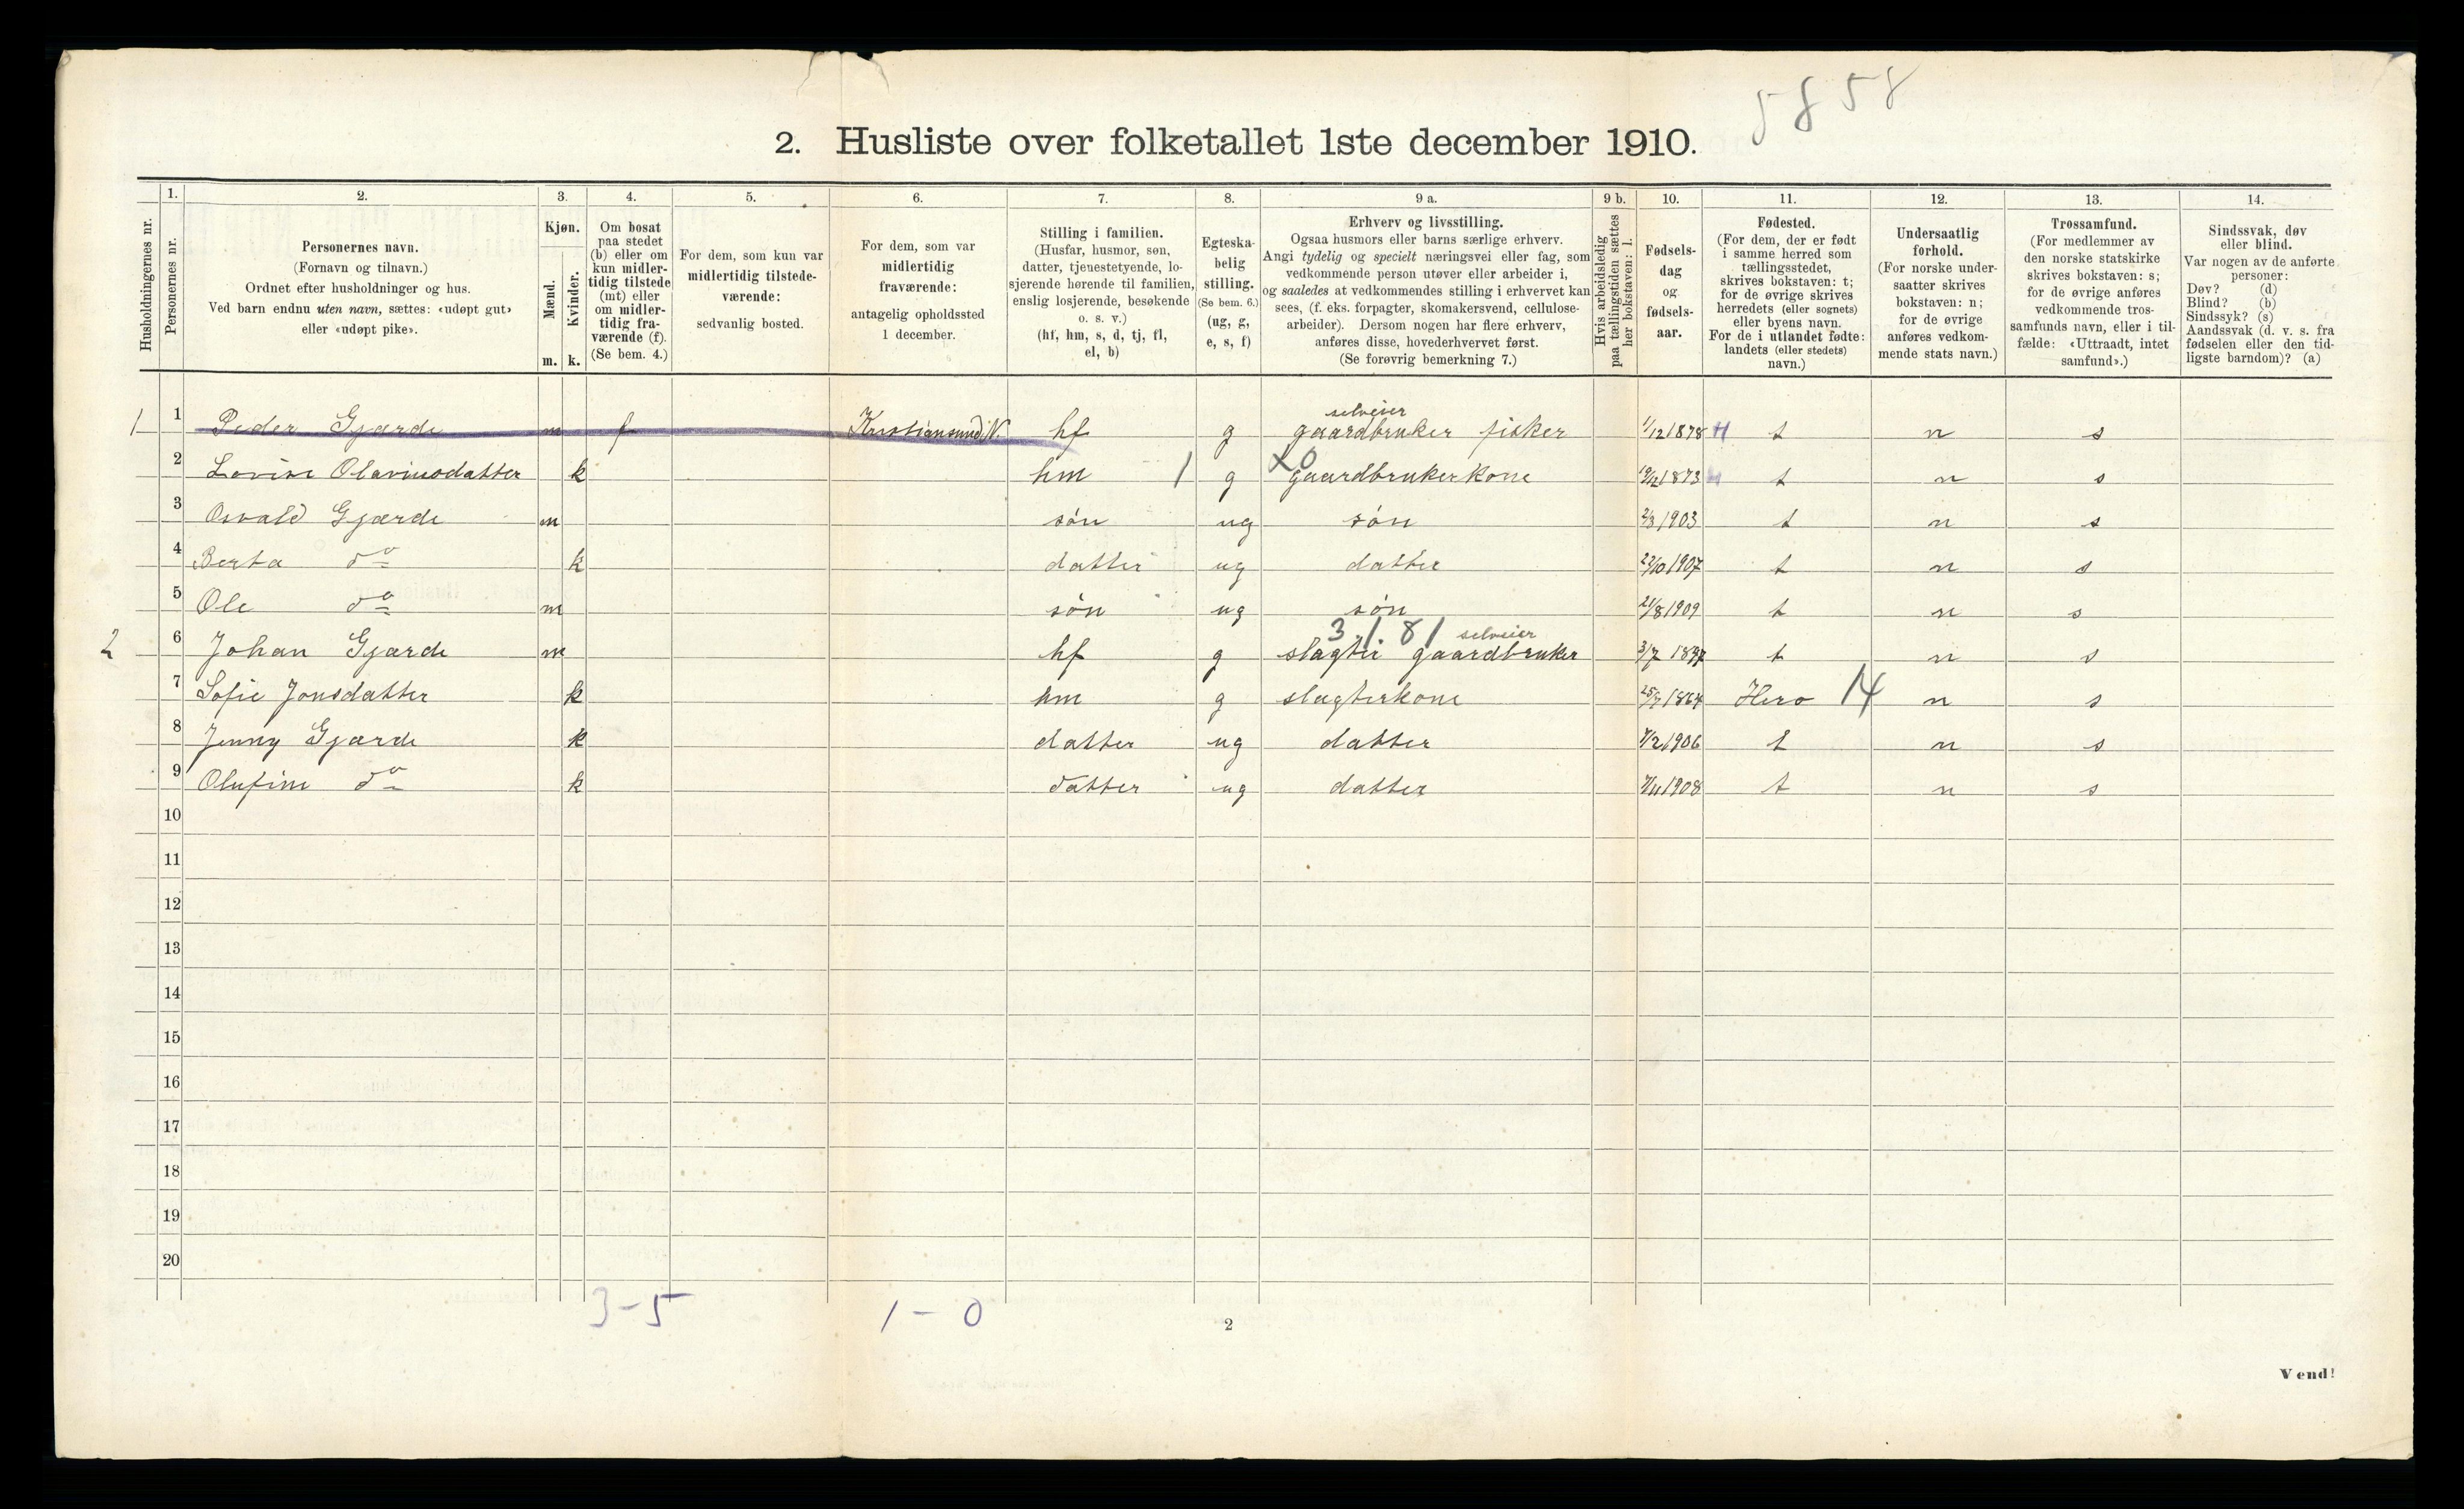 5858
2. Husliste over folketallet 1ste december 1910.
Husholdningernes nr.
1.
Personernes nr.
2.
Personernes navn.
(Fornavn og tilnavn.)
Ordnet efter husholdninger og hus.
Ved barn endnu uten navn, sættes: «udøpt gut»
eller «udøpt pike».
3.
Kjøn.
Mænd.
Kvinder.
m. k.
4.
Om bosat
paa stedet
(b) eller om
kun midler-
tidig tilstede
(mt) eller
om midler-
tidig fra-
værende (f).
(Se bem. 4.)
5.
For dem, som kun var
midlertidig tilstede-
værende:
sedvanlig bosted.
6.
For dem, som var
midlertidig
fraværende:
antagelig opholdssted
1 december.
7.
Stilling i familien.
(Husfar, husmor, søn,
datter, tjenestetyende, lo-
sjerende hørende til familien,
enslig losjerende, besøkende
o. s. v.)
(hf, hm, s, d, tj, fl,
el, b)
8.
Egteska-
belig
stilling.
(Se bem. 6.)
(ug, g,
e, s, f)
9 a.
Erhverv og livsstilling.
Ogsaa husmors eller barns særlige erhverv.
Angi tydelig og specielt næringsvei eller fag, som
vedkommende person utøver eller arbeider i,
og saaledes at vedkommendes stilling i erhvervet kan
sees, (f. eks. forpagter, skomakersvend, cellulose-
arbeider). Dersom nogen har flere erhverv,
anføres disse, hovederhvervet først.
(Se forøvrig bemerkning 7.)
9 b.
Hvis arbeidsledig
paa tællingstiden sættes
her bokstaven: l.
10.
Fødsels-
dag
og
fødsels-
aar.
11.
Fødested.
(For dem, der er født
i samme herred som
tællingsstedet,
skrives bokstaven: t;
for de øvrige skrives
herredets (eller sognets)
eller byens navn.
For de i utlandet fødte:
landets (eller stedets)
navn.)
12.
Undersaatlig
forhold.
(For norske under-
saatter skrives
bokstaven: n;
for de øvrige
anføres vedkom-
mende stats navn.)
13.
Trossamfund.
(For medlemmer av
den norske statskirke
skrives bokstaven: s;
for de øvrige anføres
vedkommende tros-
samfunds navn, eller i til-
fælde: «Uttraadt, intet
samfund».)
14.
Sindssvak, døv
eller blind.
Var nogen av de anførte
personer:
Døv? (d)
Blind? (b)
Sindssyk? (s)
Aandssvak (d. v. s. fra
fødselen eller den tid-
ligste barndom)? (a)
selveier
1 1 Peder Gjærde m f Kristiansund N. hf g gaardbruker fisker 1/12 1878 H t n s
2 Lovise Olavinusdatter k hm 1 g X0 gaardbrukerkone 1873 t n s
3 Osvald Gjærde m søn ug søn 2/3 1903 t n s
4 Berta do k datter ug datter 23/10 1907 t n s
5 Ole do m søn ug søn 21/8 1909 t n s
3 1. 81 selveier
2 6 Johan Gjærde m hf g slagter gaardbruker 3/7 t n s
7 Sofie Jonsdatter k hm g slagterkone 25/7 1864 Herø 14 n s
8 Jenny Gjærde k datter ug datter 7/2 1906 t n s
9 Olufine do k datter ug datter 7/11 1908 t n s
10
11
12
13
14
15
16
17
18
19
20
3-5 1-0
2
Vend!